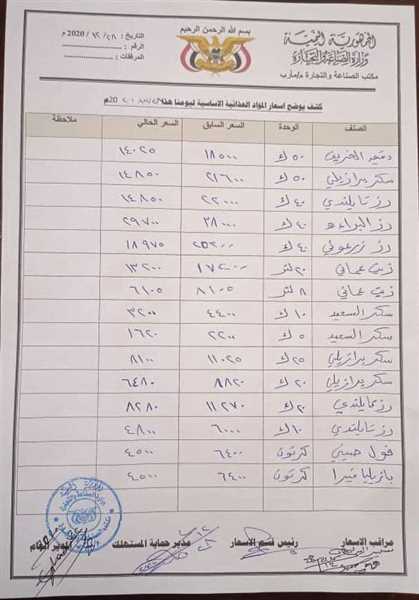 بسم الله الرحمن الرحيم
الجمهورية اليمنية
وزارة الصناعة والتجارة
مكتب الصناعة والتجارة م/مأرب
التاريخ : ٢٨ / ١٢ / 2020م
الرقم :
المرفقات :
كشف يوضح اسعار المواد الغذائية الاساسية ليومنا هذا
الصنف الوحدة السعر السابق السعر الحالي ملاحظة
دقيق ٥٠ك ١٨٥٠٠ ١٤٠٢٥
سكر برازيلي ٥٠ك ٢١٦٠٠ ١٤٨٥٠
رز تايلندي ٤٠ك ٢٢٠٠٠ ١٤٨٥٠
رز ٤٠ك ٣٨٠٠٠ ٢٩٧٠٠
رز ٤٠ك ١٨٩٧٥
زيت عماني ٢٠ لتر ١٧٢٠٠ ١٣٢٠٠
زيت عماني ٨ لتر ٨١٠٥ ٦١٠٥
سكر السعيد ١٠ك ٤٤٠٠ ٣٢٠٠
سكر السعيد ٥ك ٢٢٠٠ ١٦٢٠
سكر برازيلي ٢٥ك ١١٠٢٥ ٨١٠٠
سكر برازيلي ٢٠ك ٨٨٢٠ ٦٤٨٠
رز تايلندي ٢٠ك ١١٢٧٠ ٨٢٨٠
رز تايلندي ١٠ك ٦٠٠٠ ٤٨٠٠
فول صيني كرتون ٦٤٠٠ ٤٥٠٠
بازيليا كرتون ٦٤٠٠ ٤٥٠٠
مراقب الاسعار رئيس قسم الاسعار مدير حماية المستهلك المدير العام